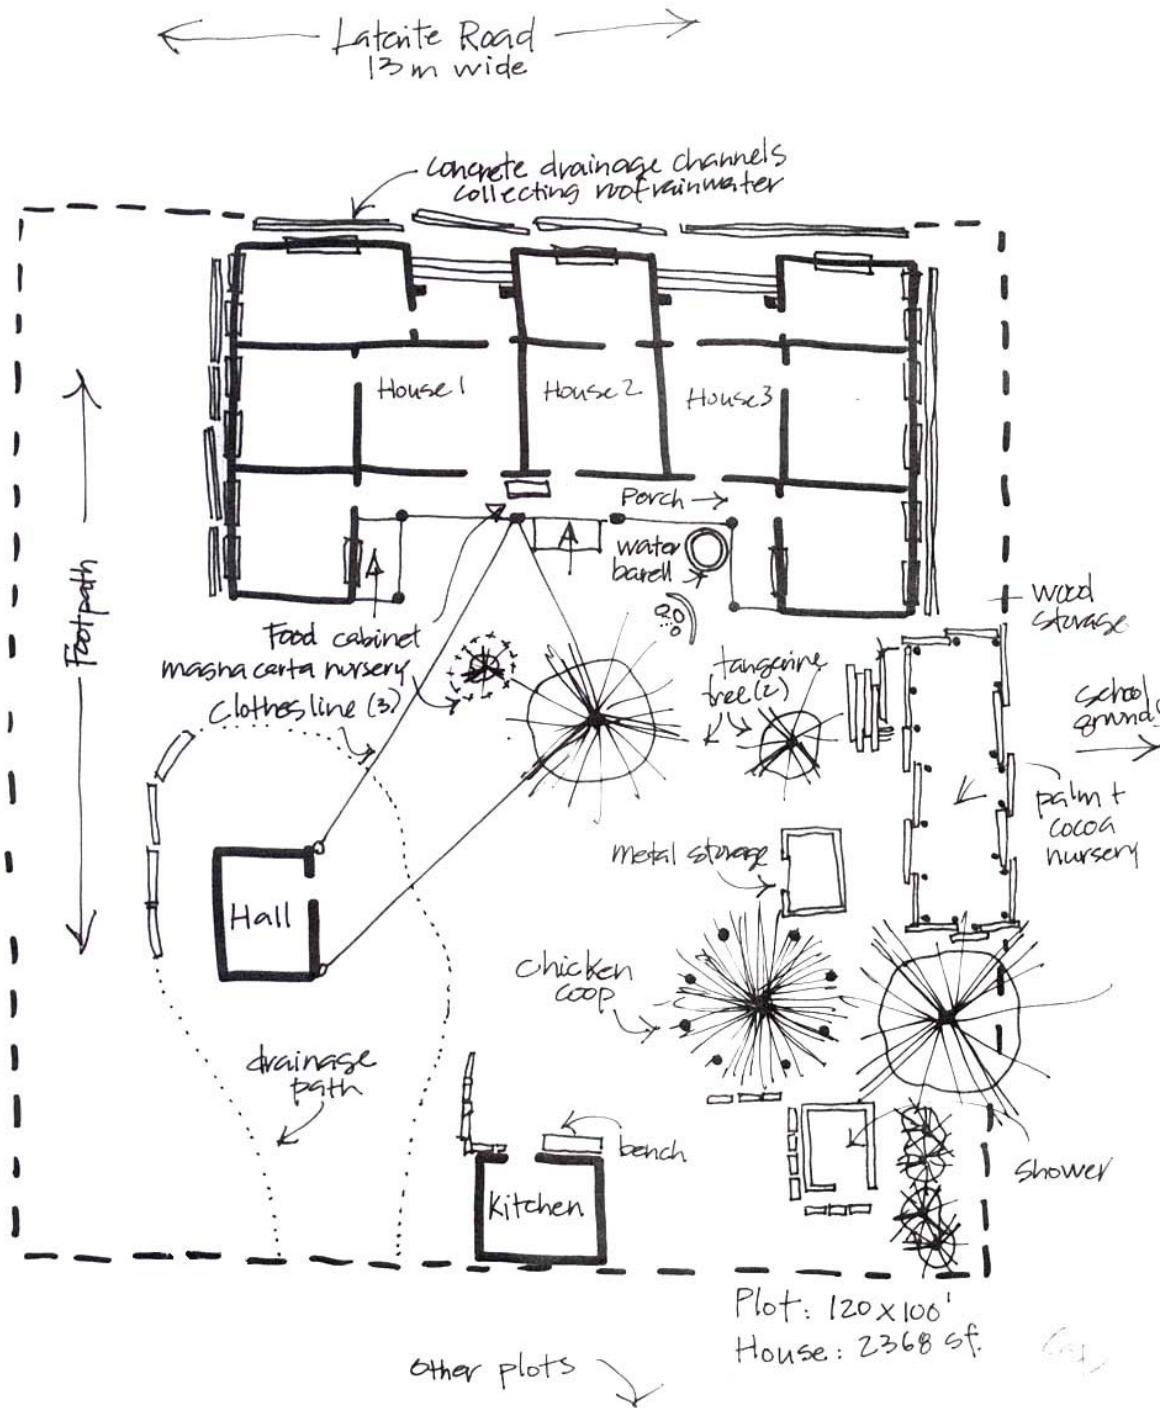 Laterite Road
13m wide
concrete drainage channels
collecting roof rainwater
House 1
House 2
House 3
Porch
water
barell
Footpath
wood
storage
Food cabinet
magna carta nursery
clothesline (3)
tangerine
tree (2)
school
grounds
palm +
cocoa
nursery
metal storage
Hall
chicken
coop
drainage
path
bench
Kitchen
shower
Plot: 120 x 100'
House: 2368 sf.
other plots